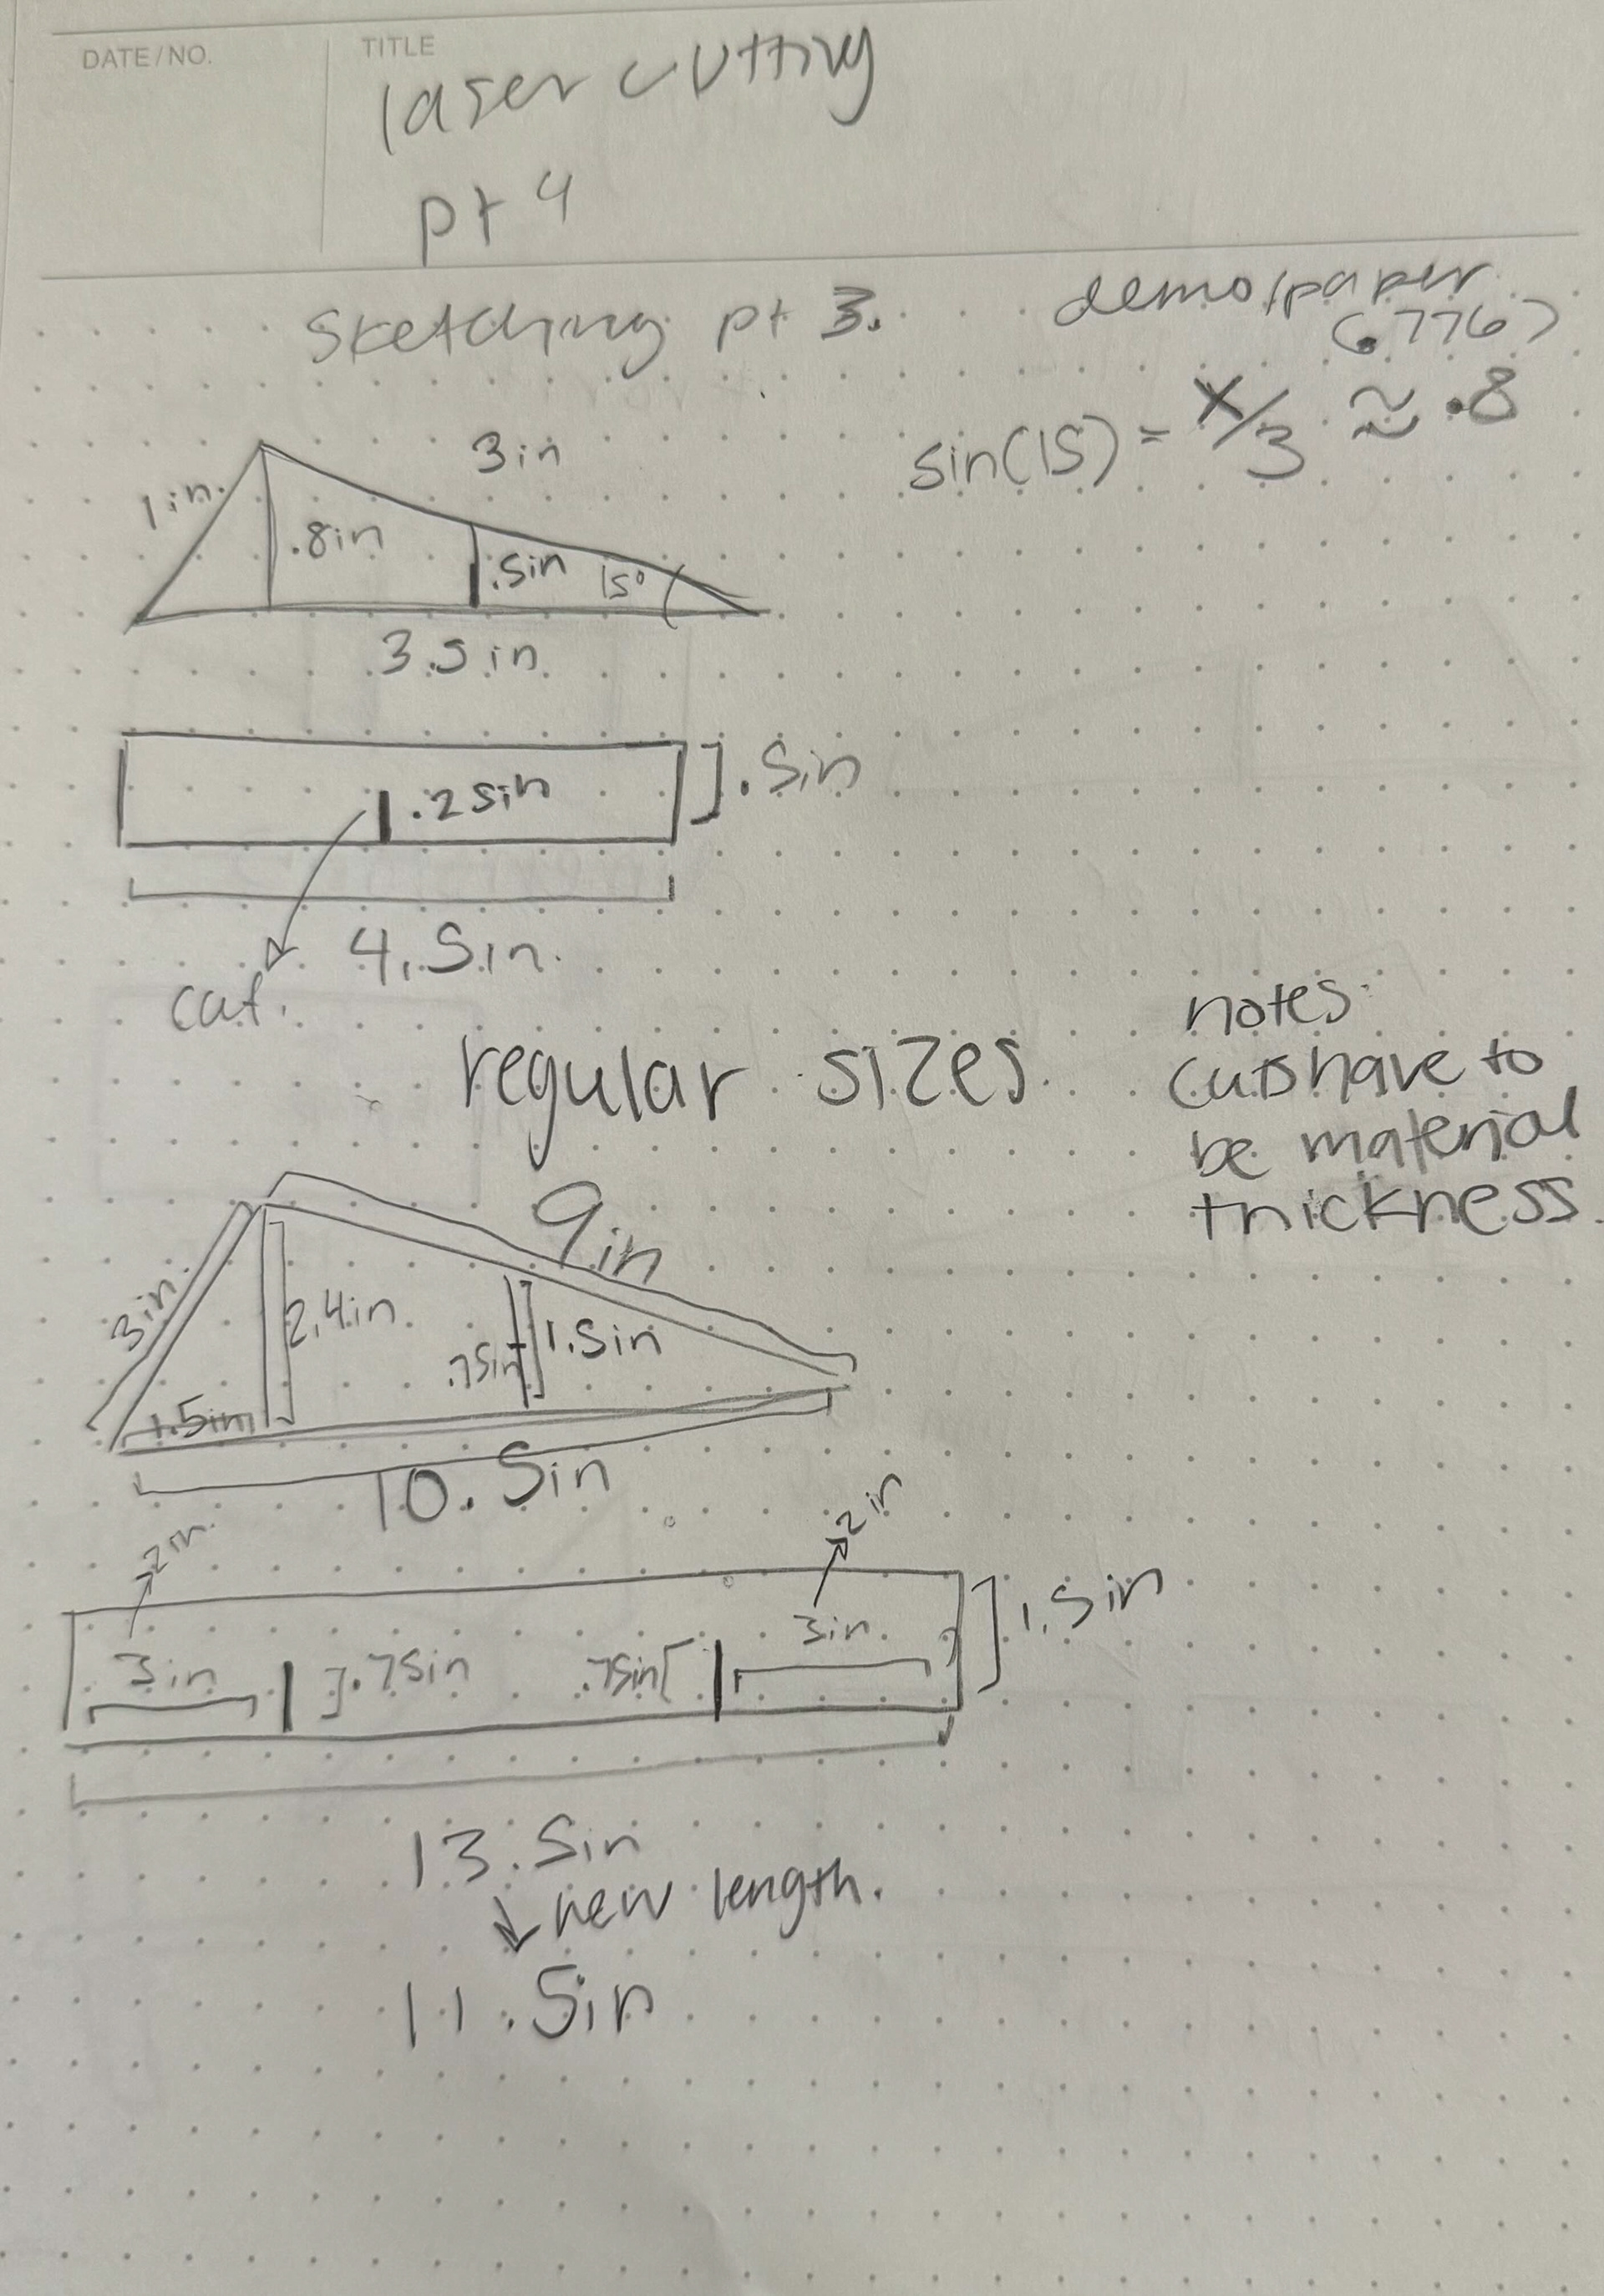 DATE/NO.
TITLE
laser cutting
pt 4
sketching pt 3.
demo/paper
(.7767)
sin(15) = x/3 ≈ .8
3in
1in.
.8in
.5in
15°
3.5in
.25in
.5in
4.5in.
cut.
regular sizes
notes:
cuts have to
be material
thickness.
9in
3in.
2.4in
.75in
1.5in
1.5in
10.5in
2in
2in
3in
.75in
.75in
3in.
1.5in
13.5in
new length.
11.5in